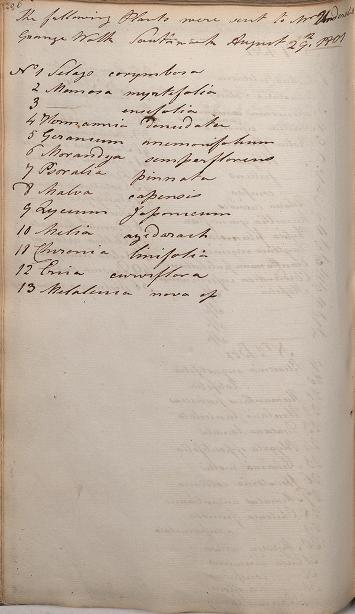 The following Plants were sent to Mr
Grange Walk Southwark August 29th. 1801
No 1 Selago corymbosa
2 Memosa myrtifolia
3 —— ensifolia
4 Hermannia denudata
5 Geranium anemonifolium
6 Morandya semperflorens
7 Psoralia pinnata
8 Malva capensis
9 Lycium Japonicum
10 Melia azedarach
11 Chronia linifolia
12 Erica curviflora
13 Melaleuca nova sp